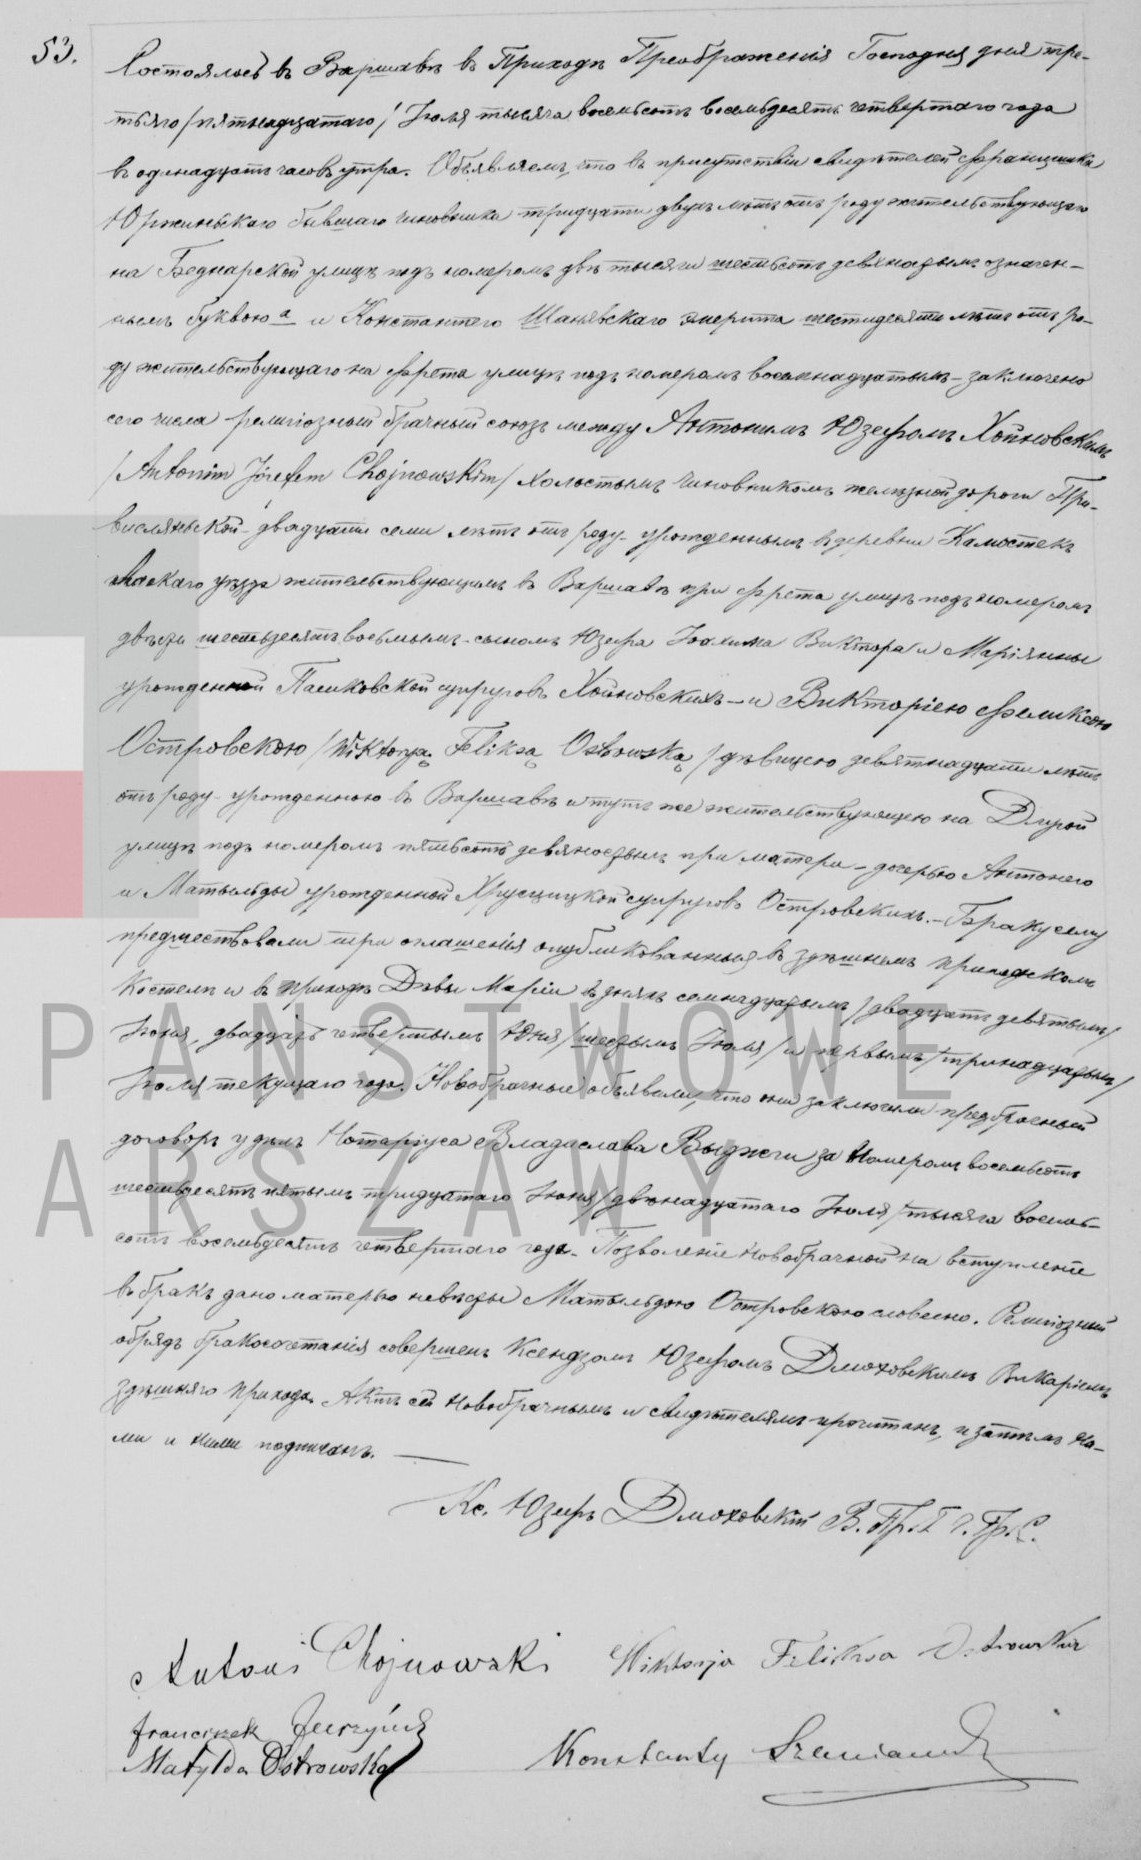 53.
Состоялось въ Варшавѣ въ Приходѣ Преображенія Господня дня тре-
тьяго /пятнадцатаго/ Іюля тысяча восемьсотъ восемьдесятъ четвертаго года
въ одинадцать часовъ утра. Объявляемъ, что въ присутствіи свидѣтелей Францишка
бывшаго чиновника тридцати двухъ лѣтъ отъ роду жительствующаго
на Беднарской улицѣ подъ номеромъ двѣ тысячи шестьсотъ означен-
нымъ буквою а и Константего Шанявскаго эмерита шестидесяти лѣтъ отъ ро-
ду жительствующаго на Фрета улицѣ подъ номеромъ восемнадцатымъ – заключено
сего числа религіозный брачный союзъ между Антонимъ Юзефомъ Хойновскимъ
/Antonim Józefem Chojnowskim/ холостымъ чиновникомъ желѣзной дороги При-
вислянской – двадцати семи лѣтъ отъ роду – урожденнымъ въ деревни
Ласкаго уѣзда жительствующимъ въ Варшавѣ при Фрета улицѣ подъ номеромъ
двѣсти шестьдесятъ восьмымъ – сыномъ Юзефа Іоахима Виктора и Маріянны
урожденной супруговъ Хойновскихъ – и Викторіею Феликсою
Островскою /Wiktoryą Feliksą Ostrowską/ дѣвицею девятнадцати лѣтъ
отъ роду – урожденною въ Варшавѣ и тутъ же жительствующею на
улицѣ подъ номеромъ пятьсотъ при матери – дочерью Антонего
и Матыльды урожденной супруговъ Островскихъ. – Браку сему
предшествовали три оглашенія опубликованныя въ здѣшнемъ приходскомъ
Костелѣ и въ приходѣ Дѣвы Маріи въ дняхъ семнадцатымъ /двадцать девятымъ/
Іюня, двадцать четвертымъ Юня /шестымъ Іюля/ и первымъ /тринадцатымъ/
Іюля текущаго года. Новобрачные объявили, что они заключили предбрачный
договоръ у дѣлъ Нотаріуса Владислава за Номеромъ восемьсотъ
шестьдесятъ пятымъ тридцатаго Іюня /двѣнадцатаго Іюля/ тысяча восемь-
сотъ восемьдесятъ четвертаго года. Позволеніе новобрачной на вступленіе
въ бракъ дано матерью невѣсты Матыльдою Островскою словесно. Религіозный
обрядъ бракосочетанія совершенъ Ксендзомъ Юзефомъ Дмоховскимъ Викаріемъ
здѣшняго прихода. Актъ сей Новобрачнымъ и свидѣтелямъ прочитанъ, и затѣмъ на-
ми и ними подписанъ. —
Кс. Юзефъ Дмоховскій
Antoni Chojnowski Wiktorja Feliksa Ostrowska
Franciszek
Matylda Ostrowska Konstanty Szaniawski
PAŃSTWOWE
ARSZAWY